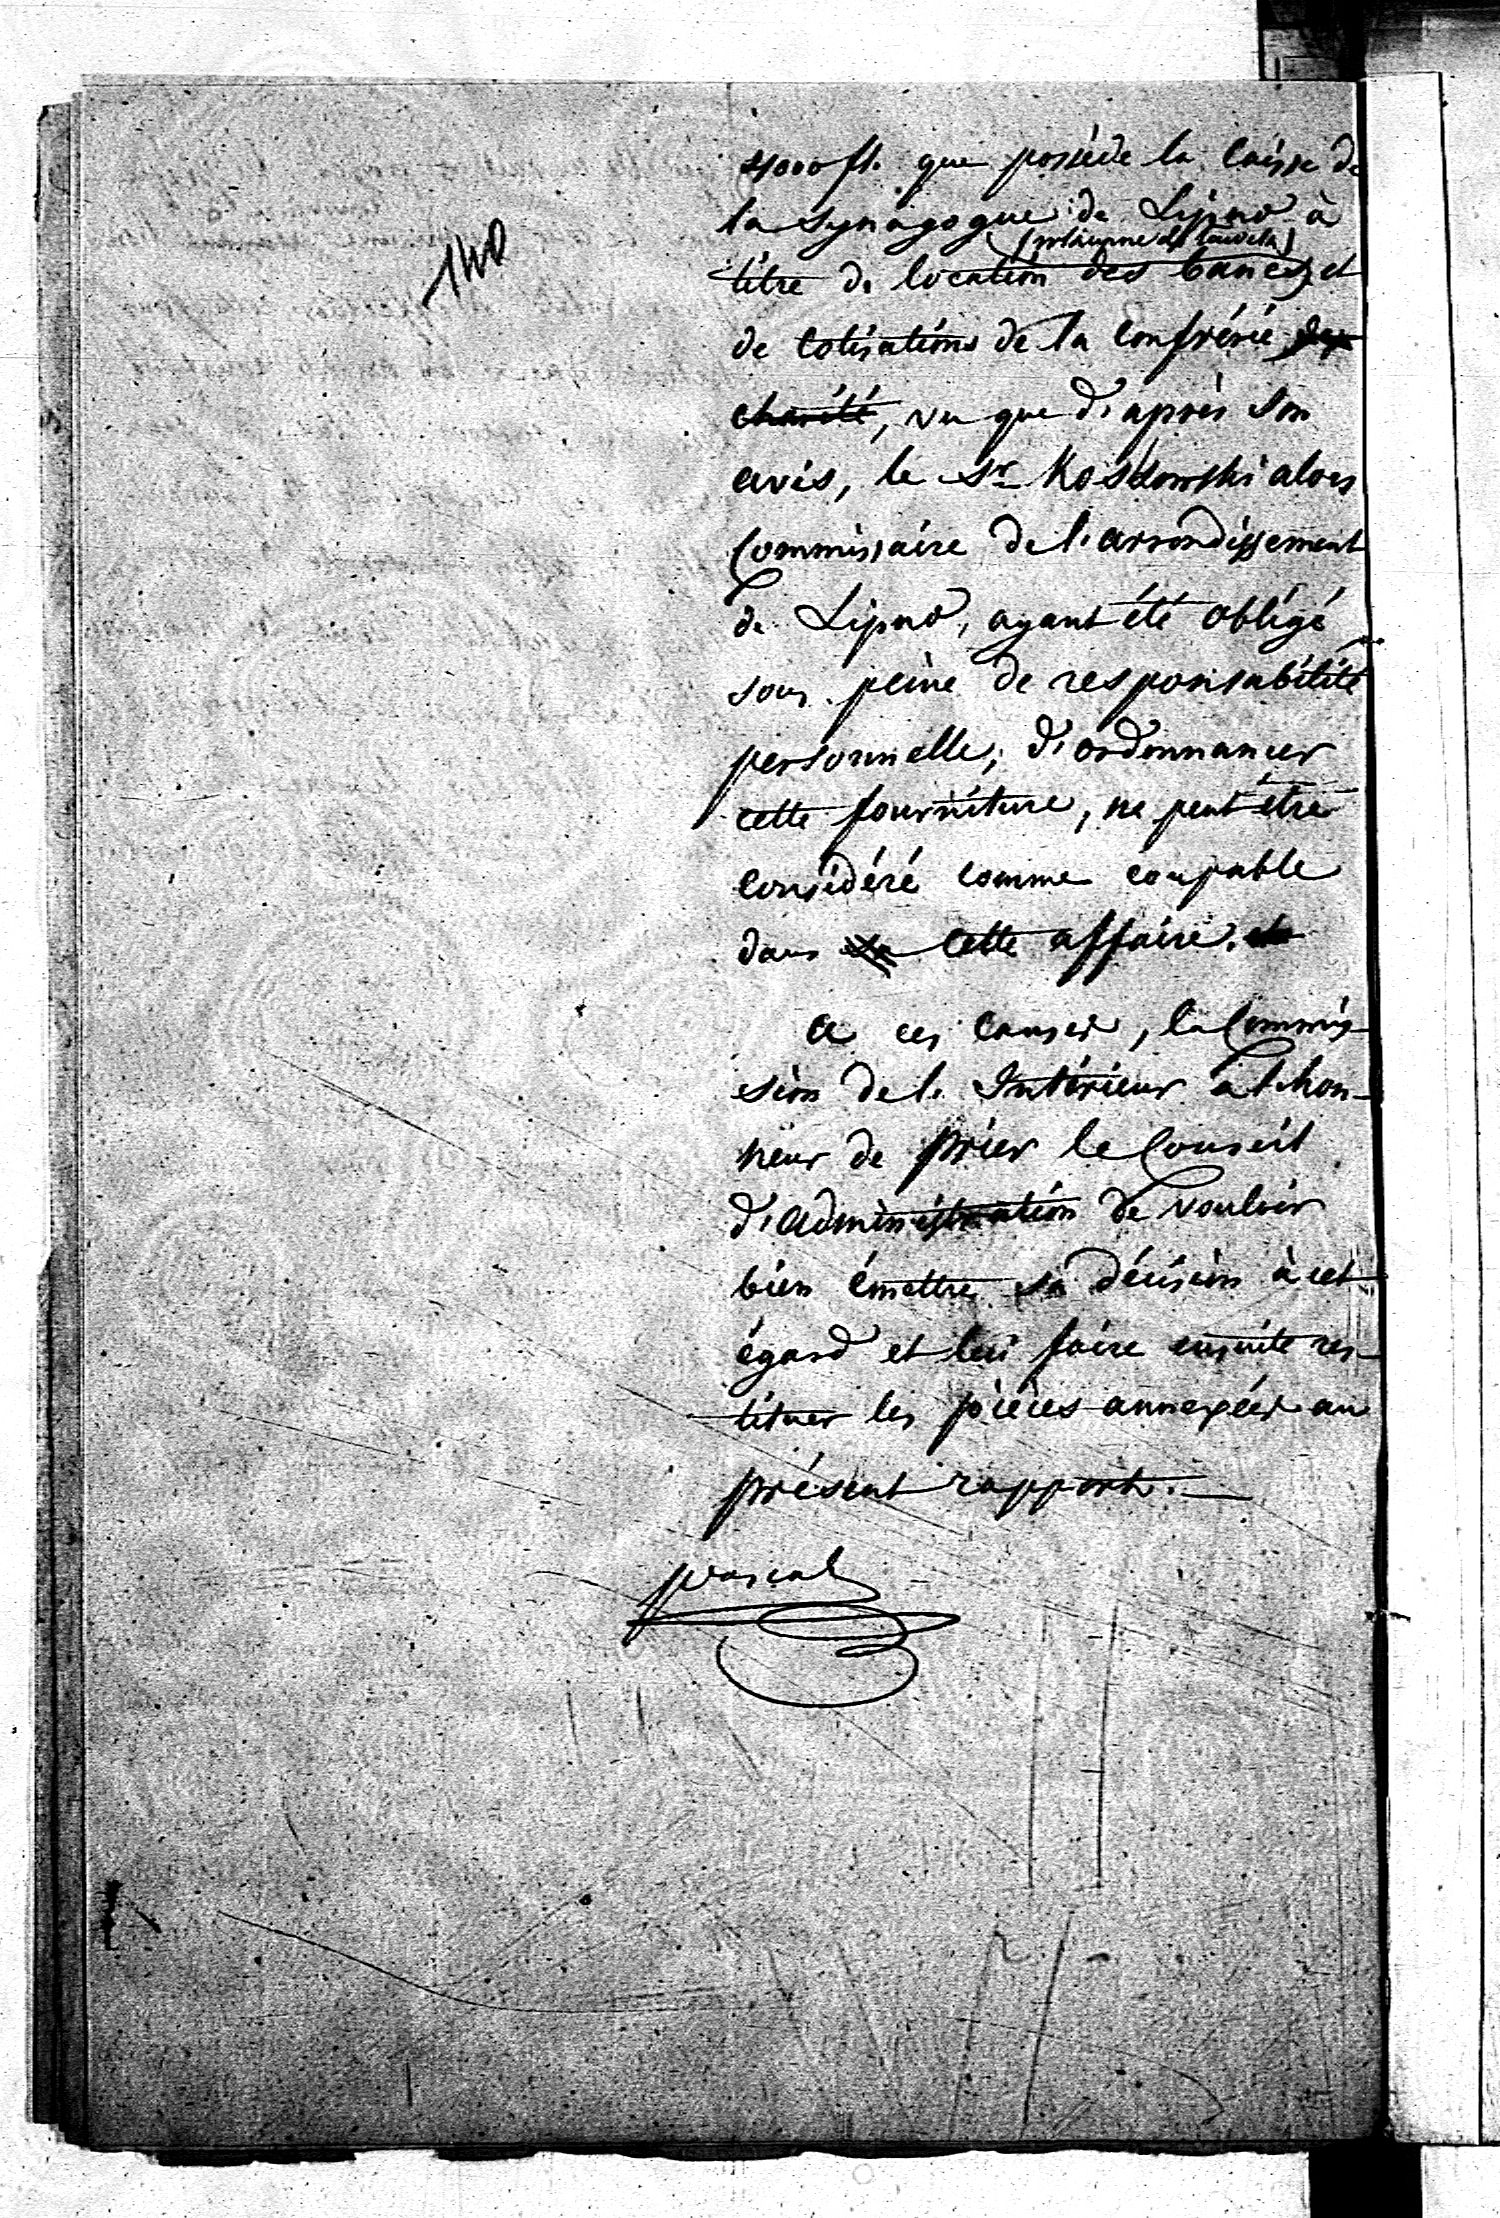 140
4000 fl. que possède la caisse de
la synagogue de Lipno à
titre de location des bancs, et
de cotisations de la confrérie
charité, vu que d'après son
avis, le Sr alors
Commissaire de l'arrondissement
de Lipno, ayant été obligé
sous peine de responsabilité
personnelle, d'ordonnancer
cette fourniture, ne peut être
considéré comme coupable
dans cette affaire.
A ces causes, la Commis-
sion de l'Intérieur a l'hon-
neur de prier le Conseil
d'Administration de vouloir
bien émettre sa décision à cet
égard et lui faire ensuite res-
tituer les pièces annexées au
présent rapport.
Pascal